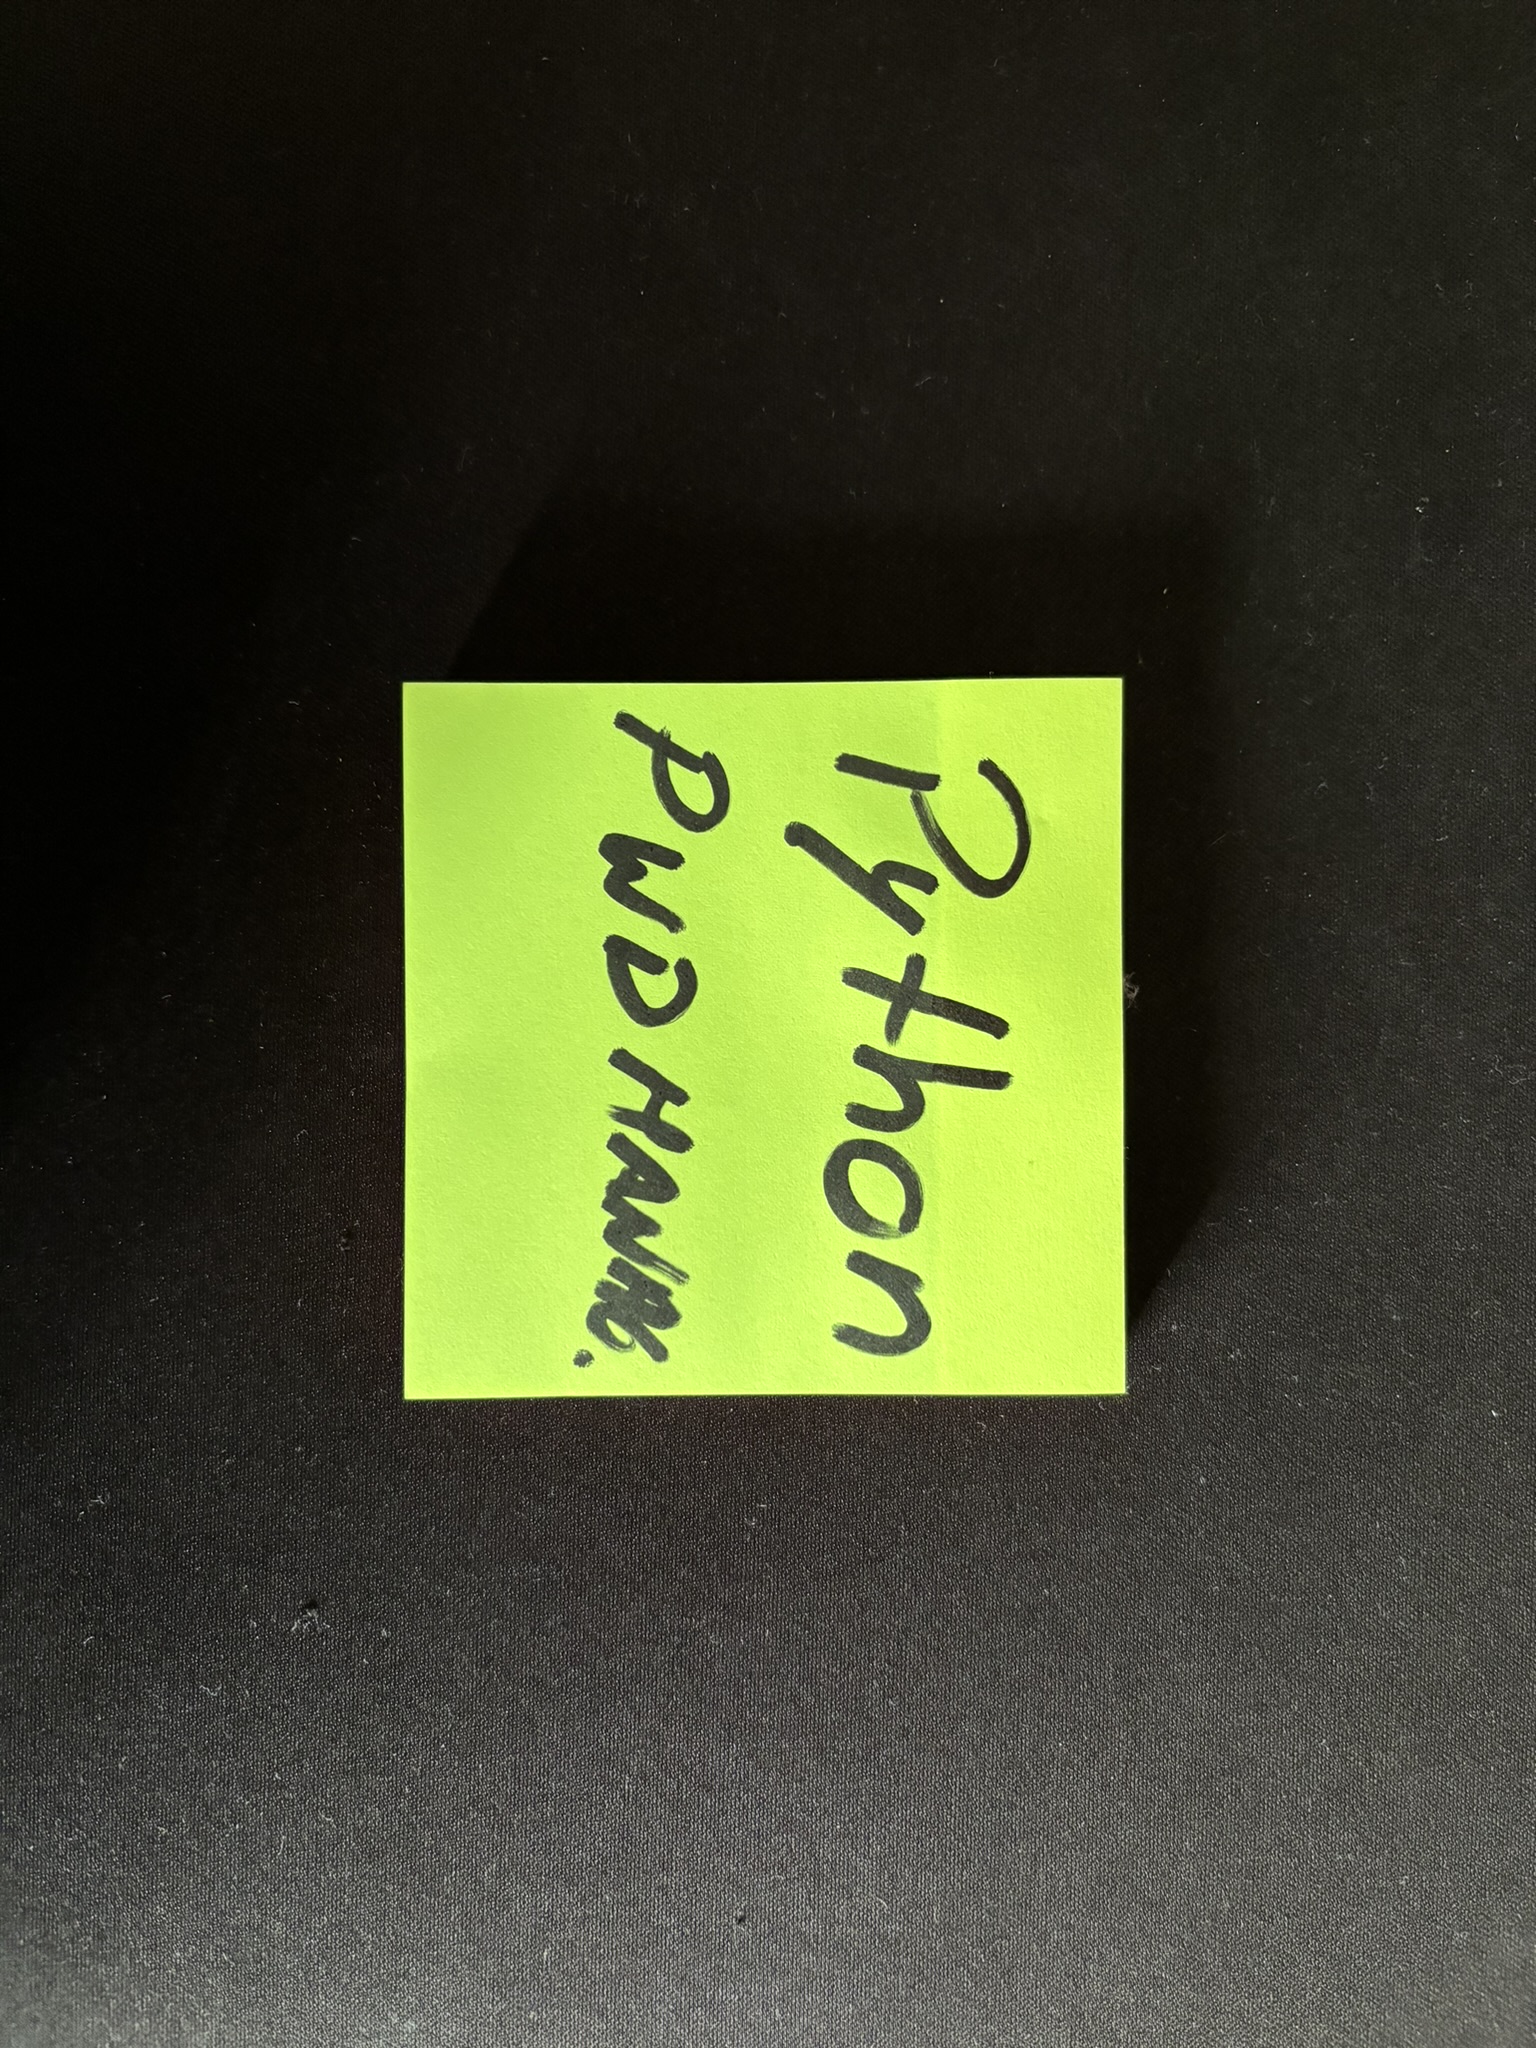 Python
PWD MANAG.